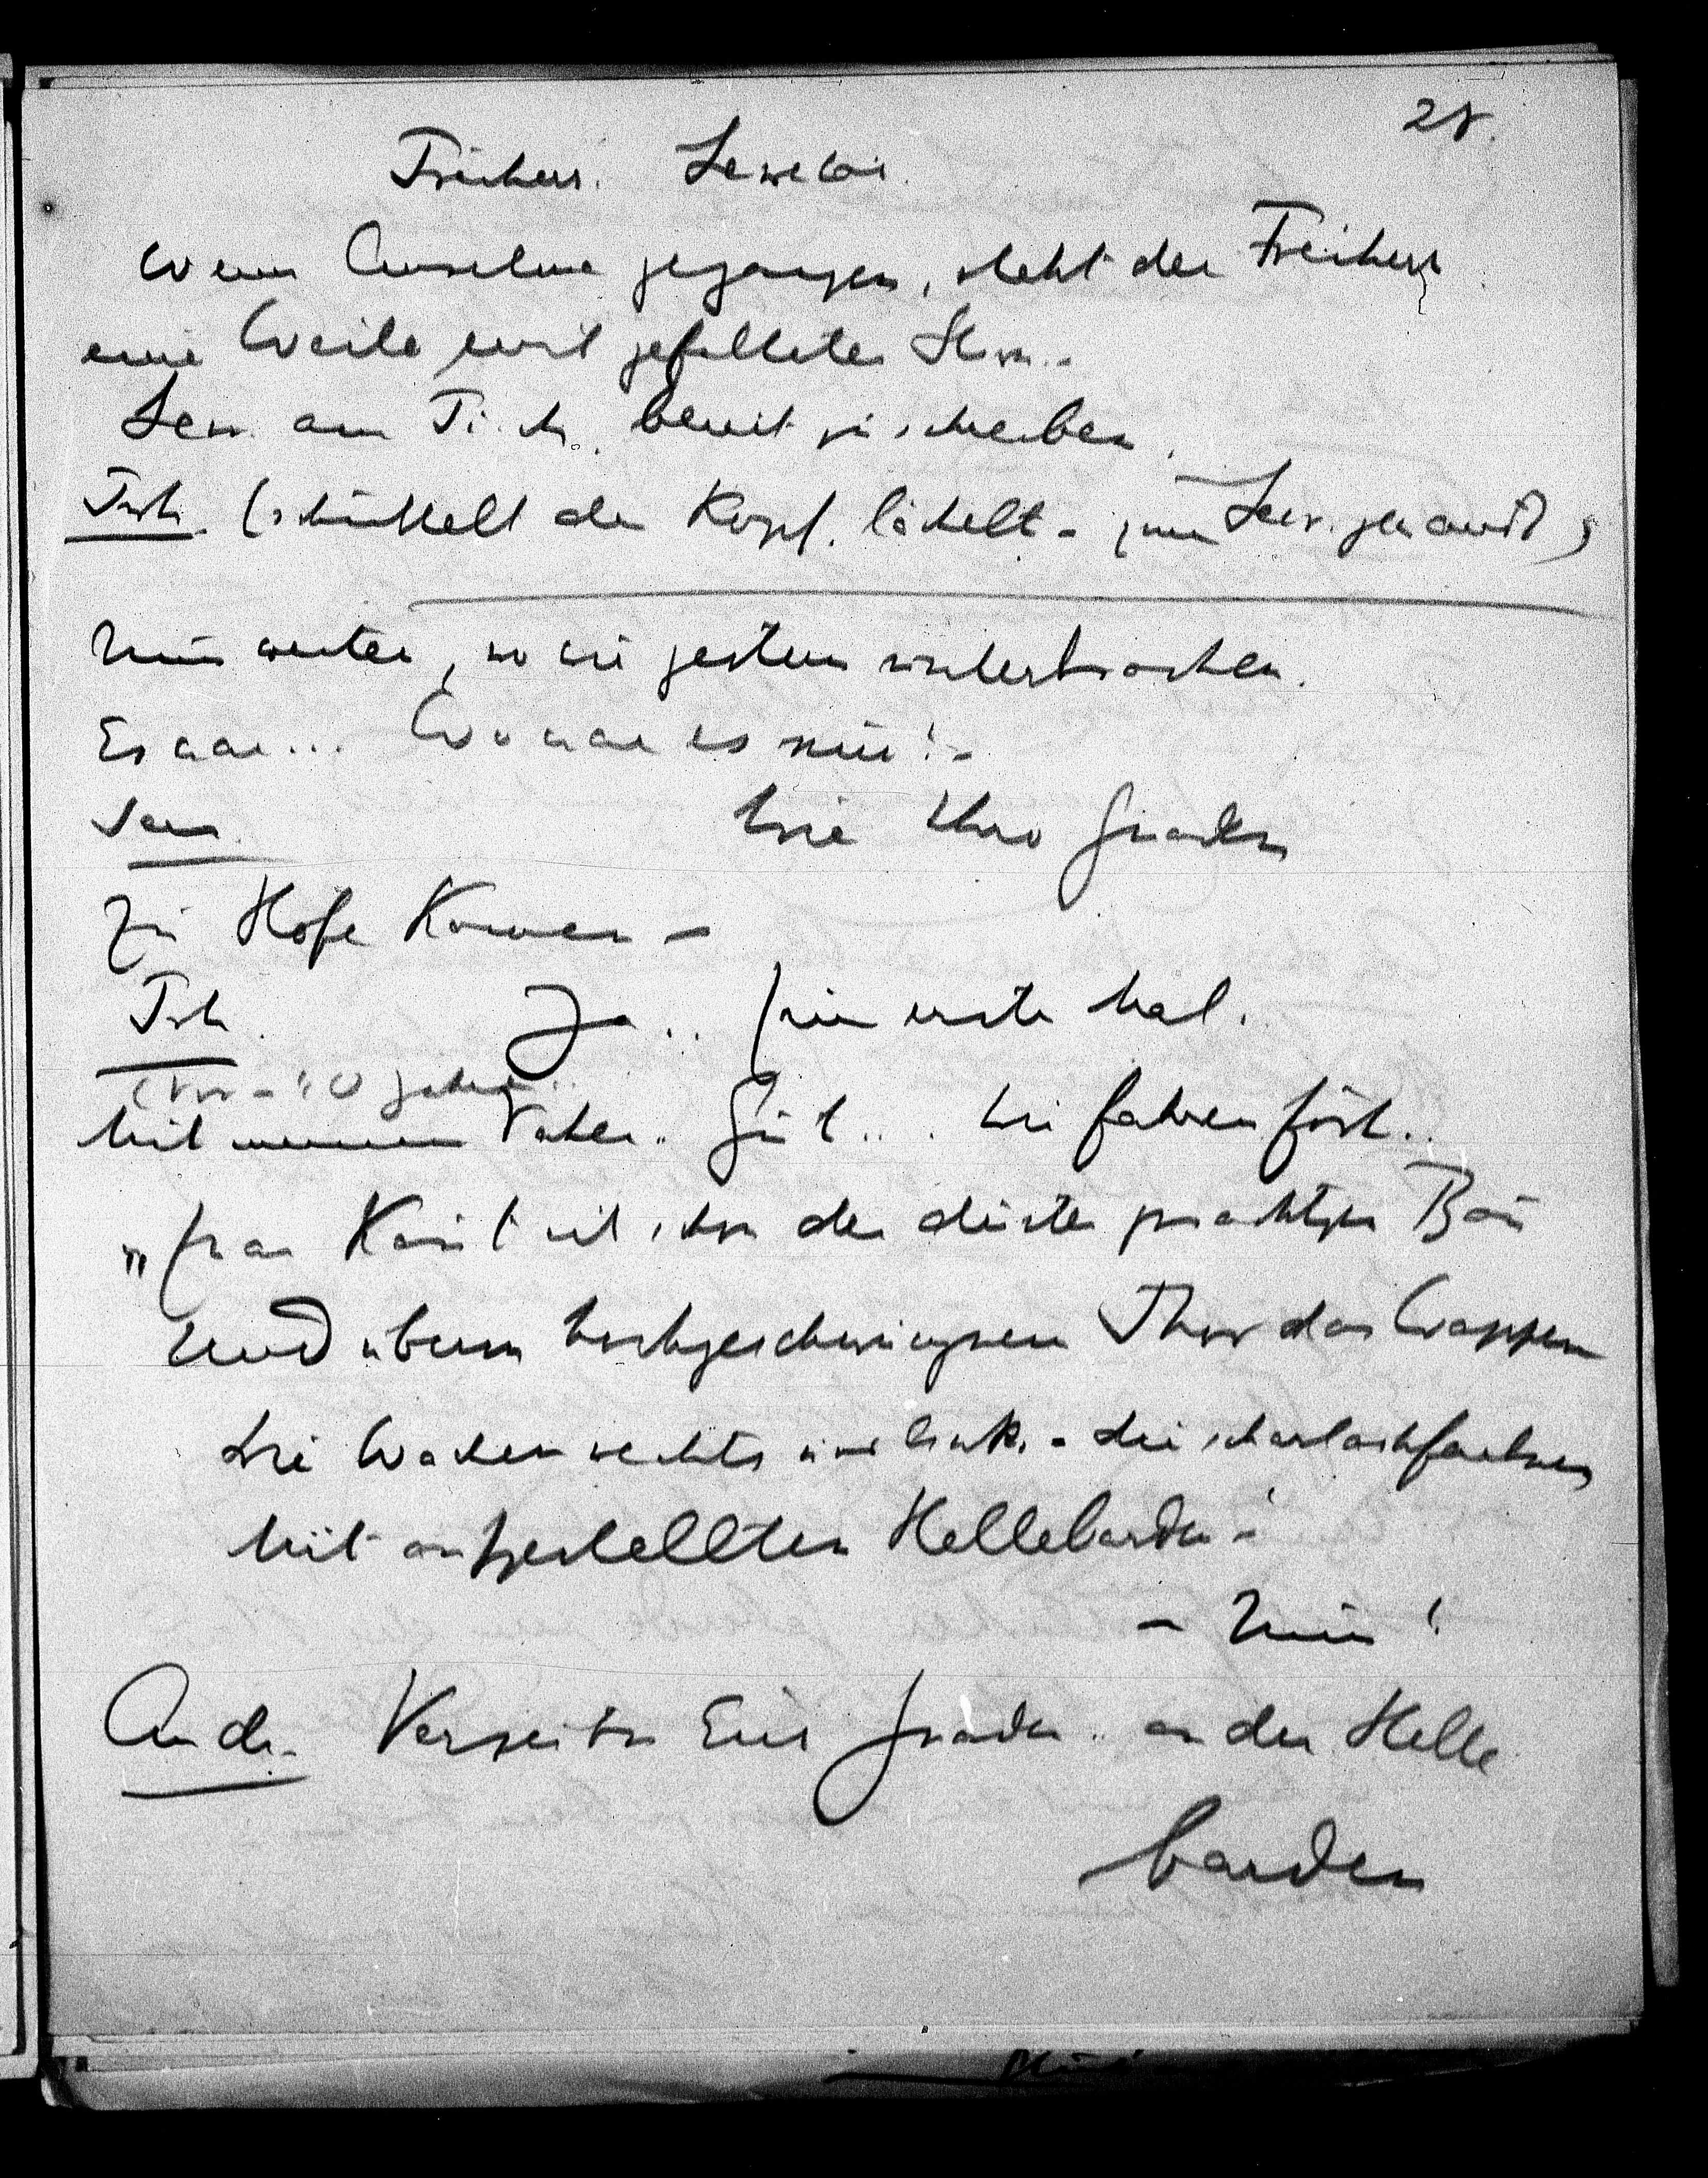 28.
Freiherr. Sekretär.
Wenn Anselma gegangen, steht der Freiherr
eine Weile mit gefalteter Stirn.-
Sekr. am Tisch, bereit zu schreiben.
Frh. (schüttelt den Kopf. lächelt - zum Sekr. gewandt)
Nun weiter, wo wir gestern unterbrachen.
Es war... Wo war es nur?-
Sekr. Wie Euer Gnaden
Zu Hofe kamen -
Frh. Ja .. zum ersten Mal.
(Vor Jahren..
Mit meinem Vater.. Gut... Wir fahren fort..
„Grau Kaum ist schon der düster prächtge Bau
Und überm hochgeschwungnen Thor das Wappen
Die Wachen rechts und links - die scharlachfarbnen
Mit aufgestellten Hellebarden -
- Nun!
And. Verzeihn Euer Gnaden .. an den Helle
barden